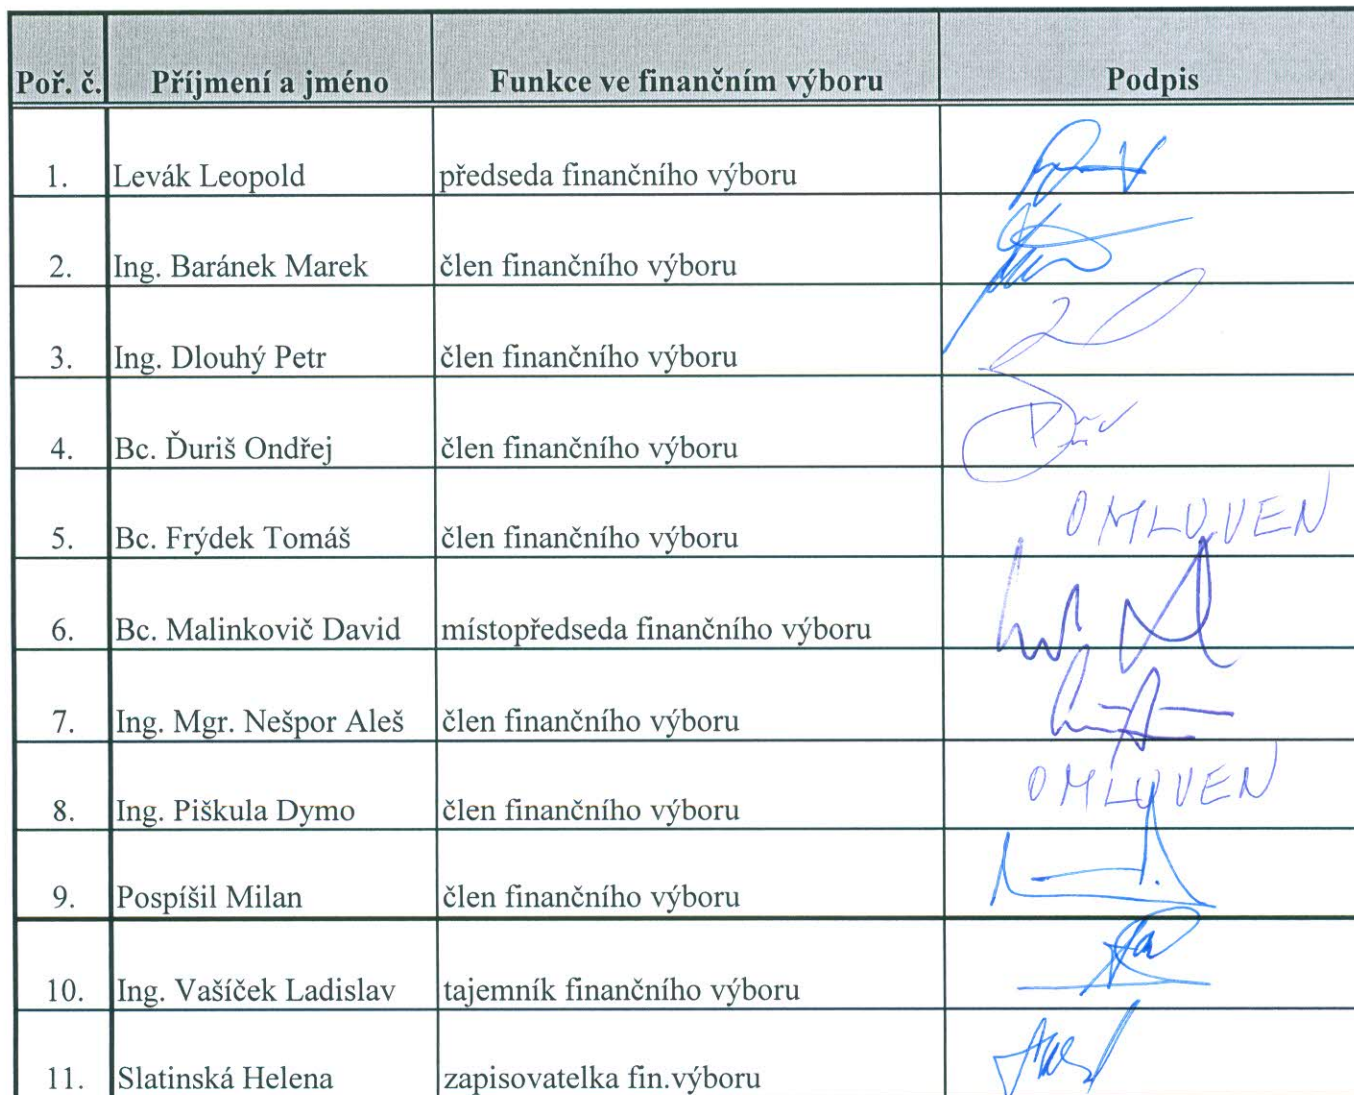 Poř. č. Příjmení a jméno Funkce ve finančním výboru Podpis
1. Levák Leopold předseda finančního výboru
2. Ing. Baránek Marek člen finančního výboru
3. Ing. Dlouhý Petr člen finančního výboru
4. Bc. Ďuriš Ondřej člen finančního výboru
5. Bc. Frýdek Tomáš člen finančního výboru OMLUVEN
6. Bc. Malinkovič David místopředseda finančního výboru
7. Ing. Mgr. Nešpor Aleš člen finančního výboru
8. Ing. Piškula Dymo člen finančního výboru OMLUVEN
9. Pospíšil Milan člen finančního výboru
10. Ing. Vašíček Ladislav tajemník finančního výboru
11. Slatinská Helena zapisovatelka fin.výboru